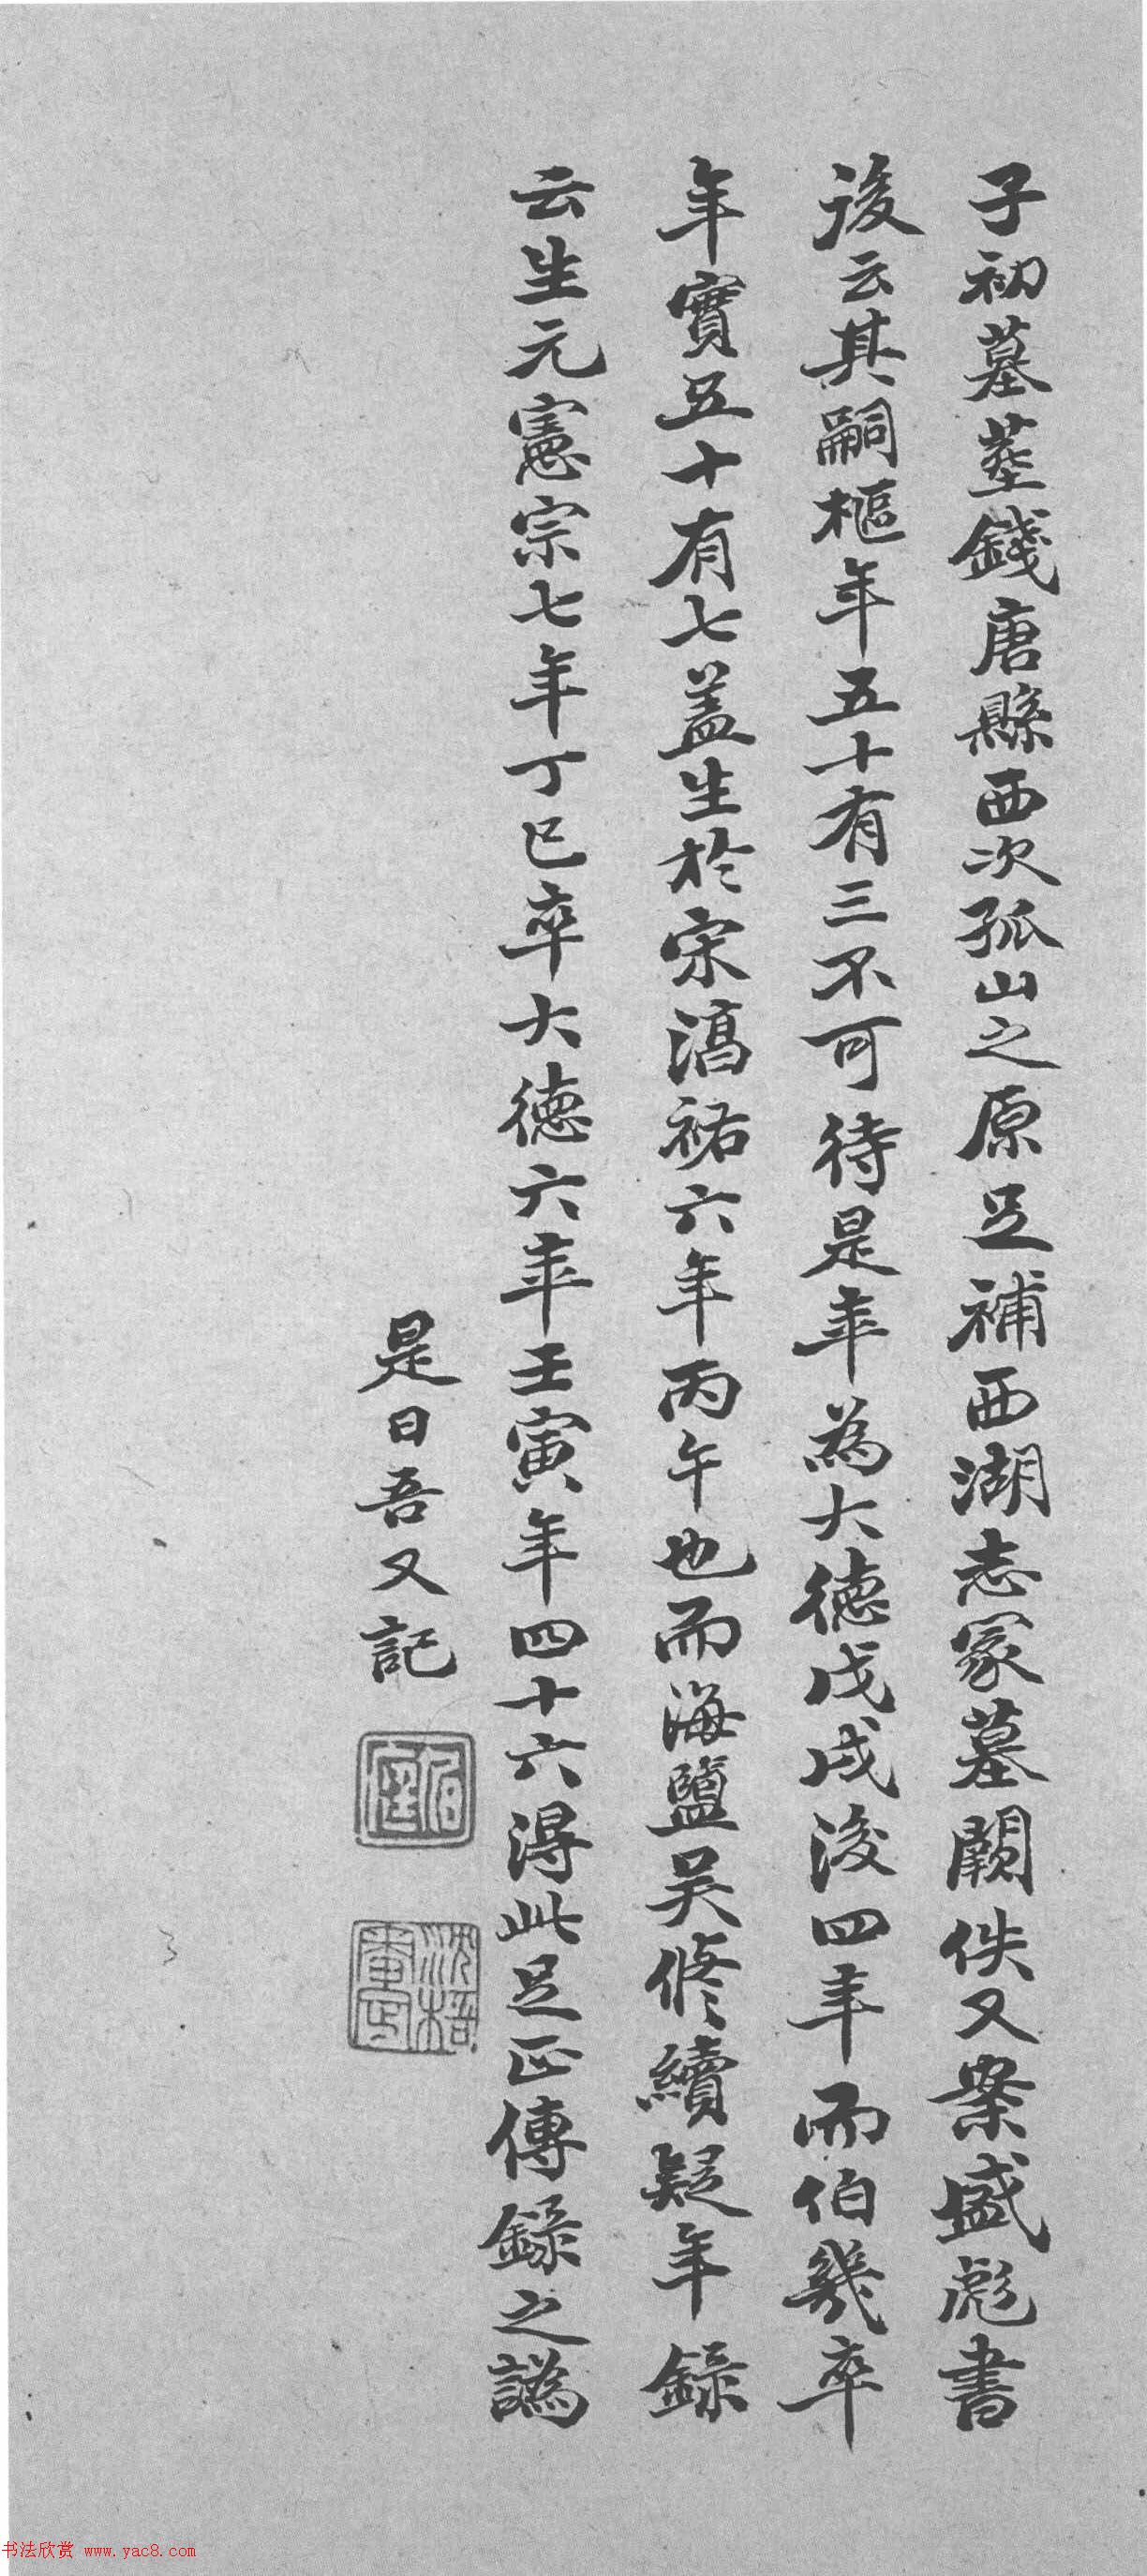 子初墓塟錢唐縣西次孤山之原足補西湖志冢墓闕佚又案盛彪書
後云其嗣樞年五十有三不可待是年為大德戊戌後四年而伯幾卒
年實五十有七盖生於宋淳祐六年丙午也而海鹽吴修續疑年錄
云生元憲宗七年丁巳卒大德六年壬寅年四十六得此足正傳錄之譌
是日吾又記
沈梧
书法欣赏 www.yac8.com